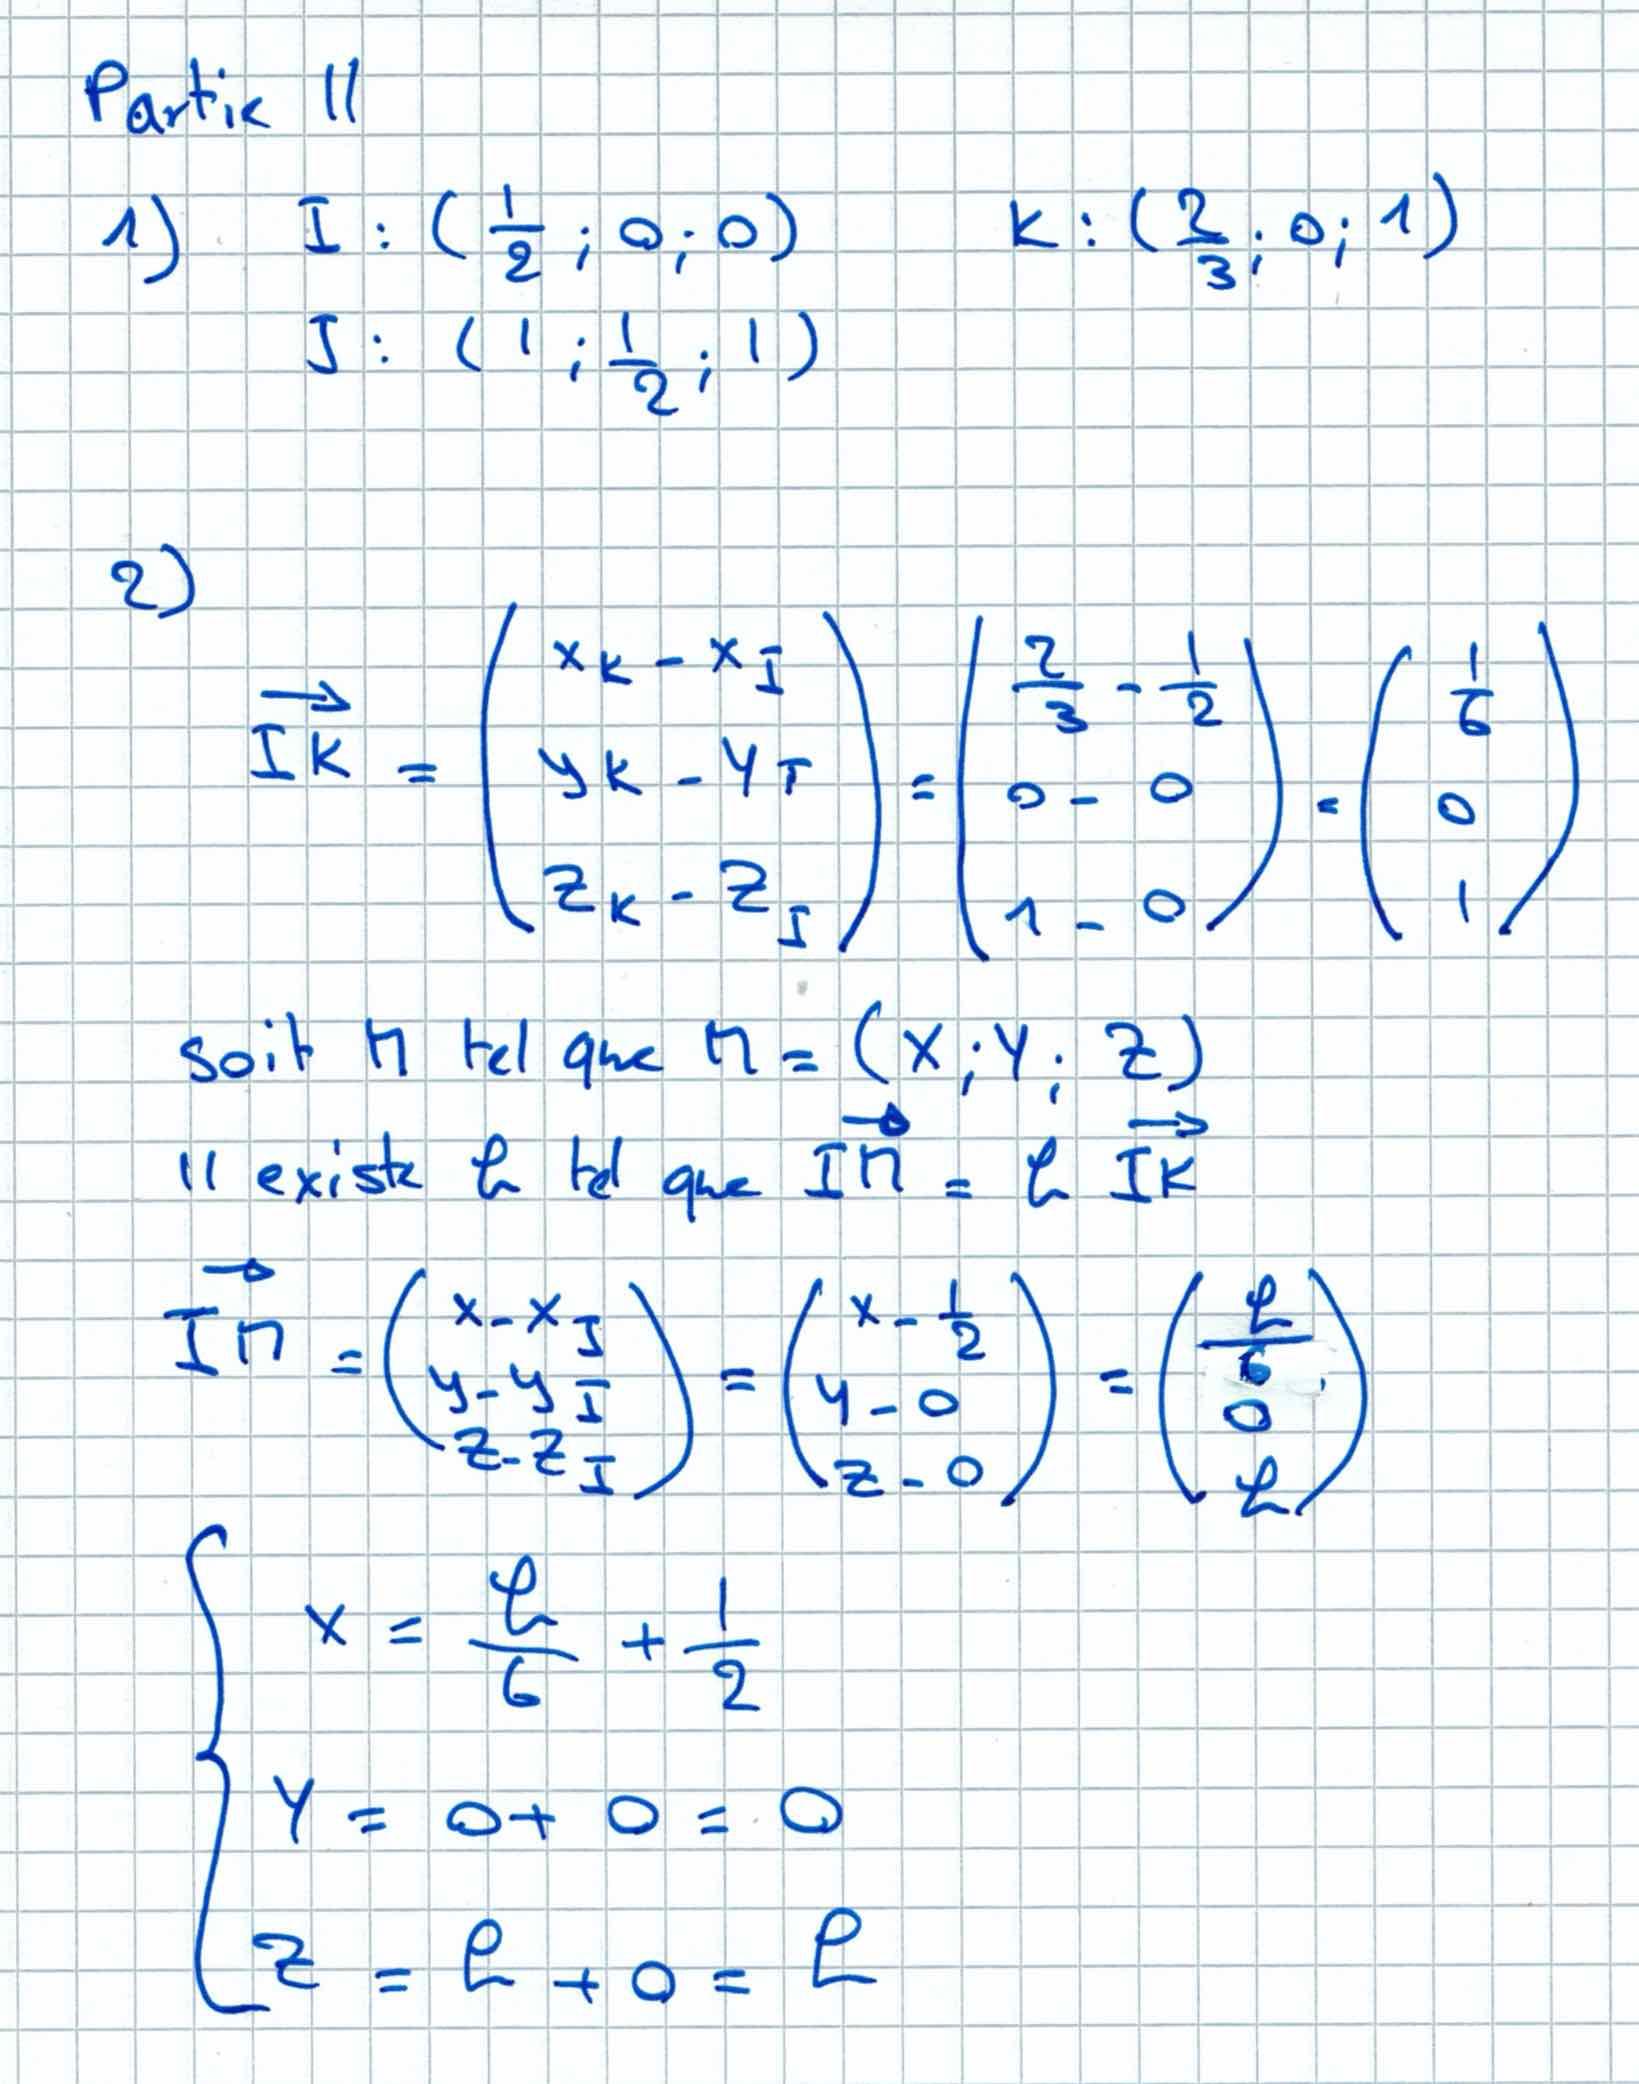 Partie II
1) I : (1/2 ; 0 ; 0) K : (2/3 ; 0 ; 1)
J : (1 ; 1/2 ; 1)
2)
IK→ = (xK - xI ; yK - yI ; zK - zI) = (2/3 - 1/2 ; 0 - 0 ; 1 - 0) = (1/6 ; 0 ; 1)
soit M tel que M = (x ; y ; z)
Il existe k tel que IM→ = k IK→
IM→ = (x - xI ; y - yI ; z - zI) = (x - 1/2 ; y - 0 ; z - 0) = (k/6 ; 0 ; k)
{ x = k/6 + 1/2
y = 0 + 0 = 0
z = k + 0 = k